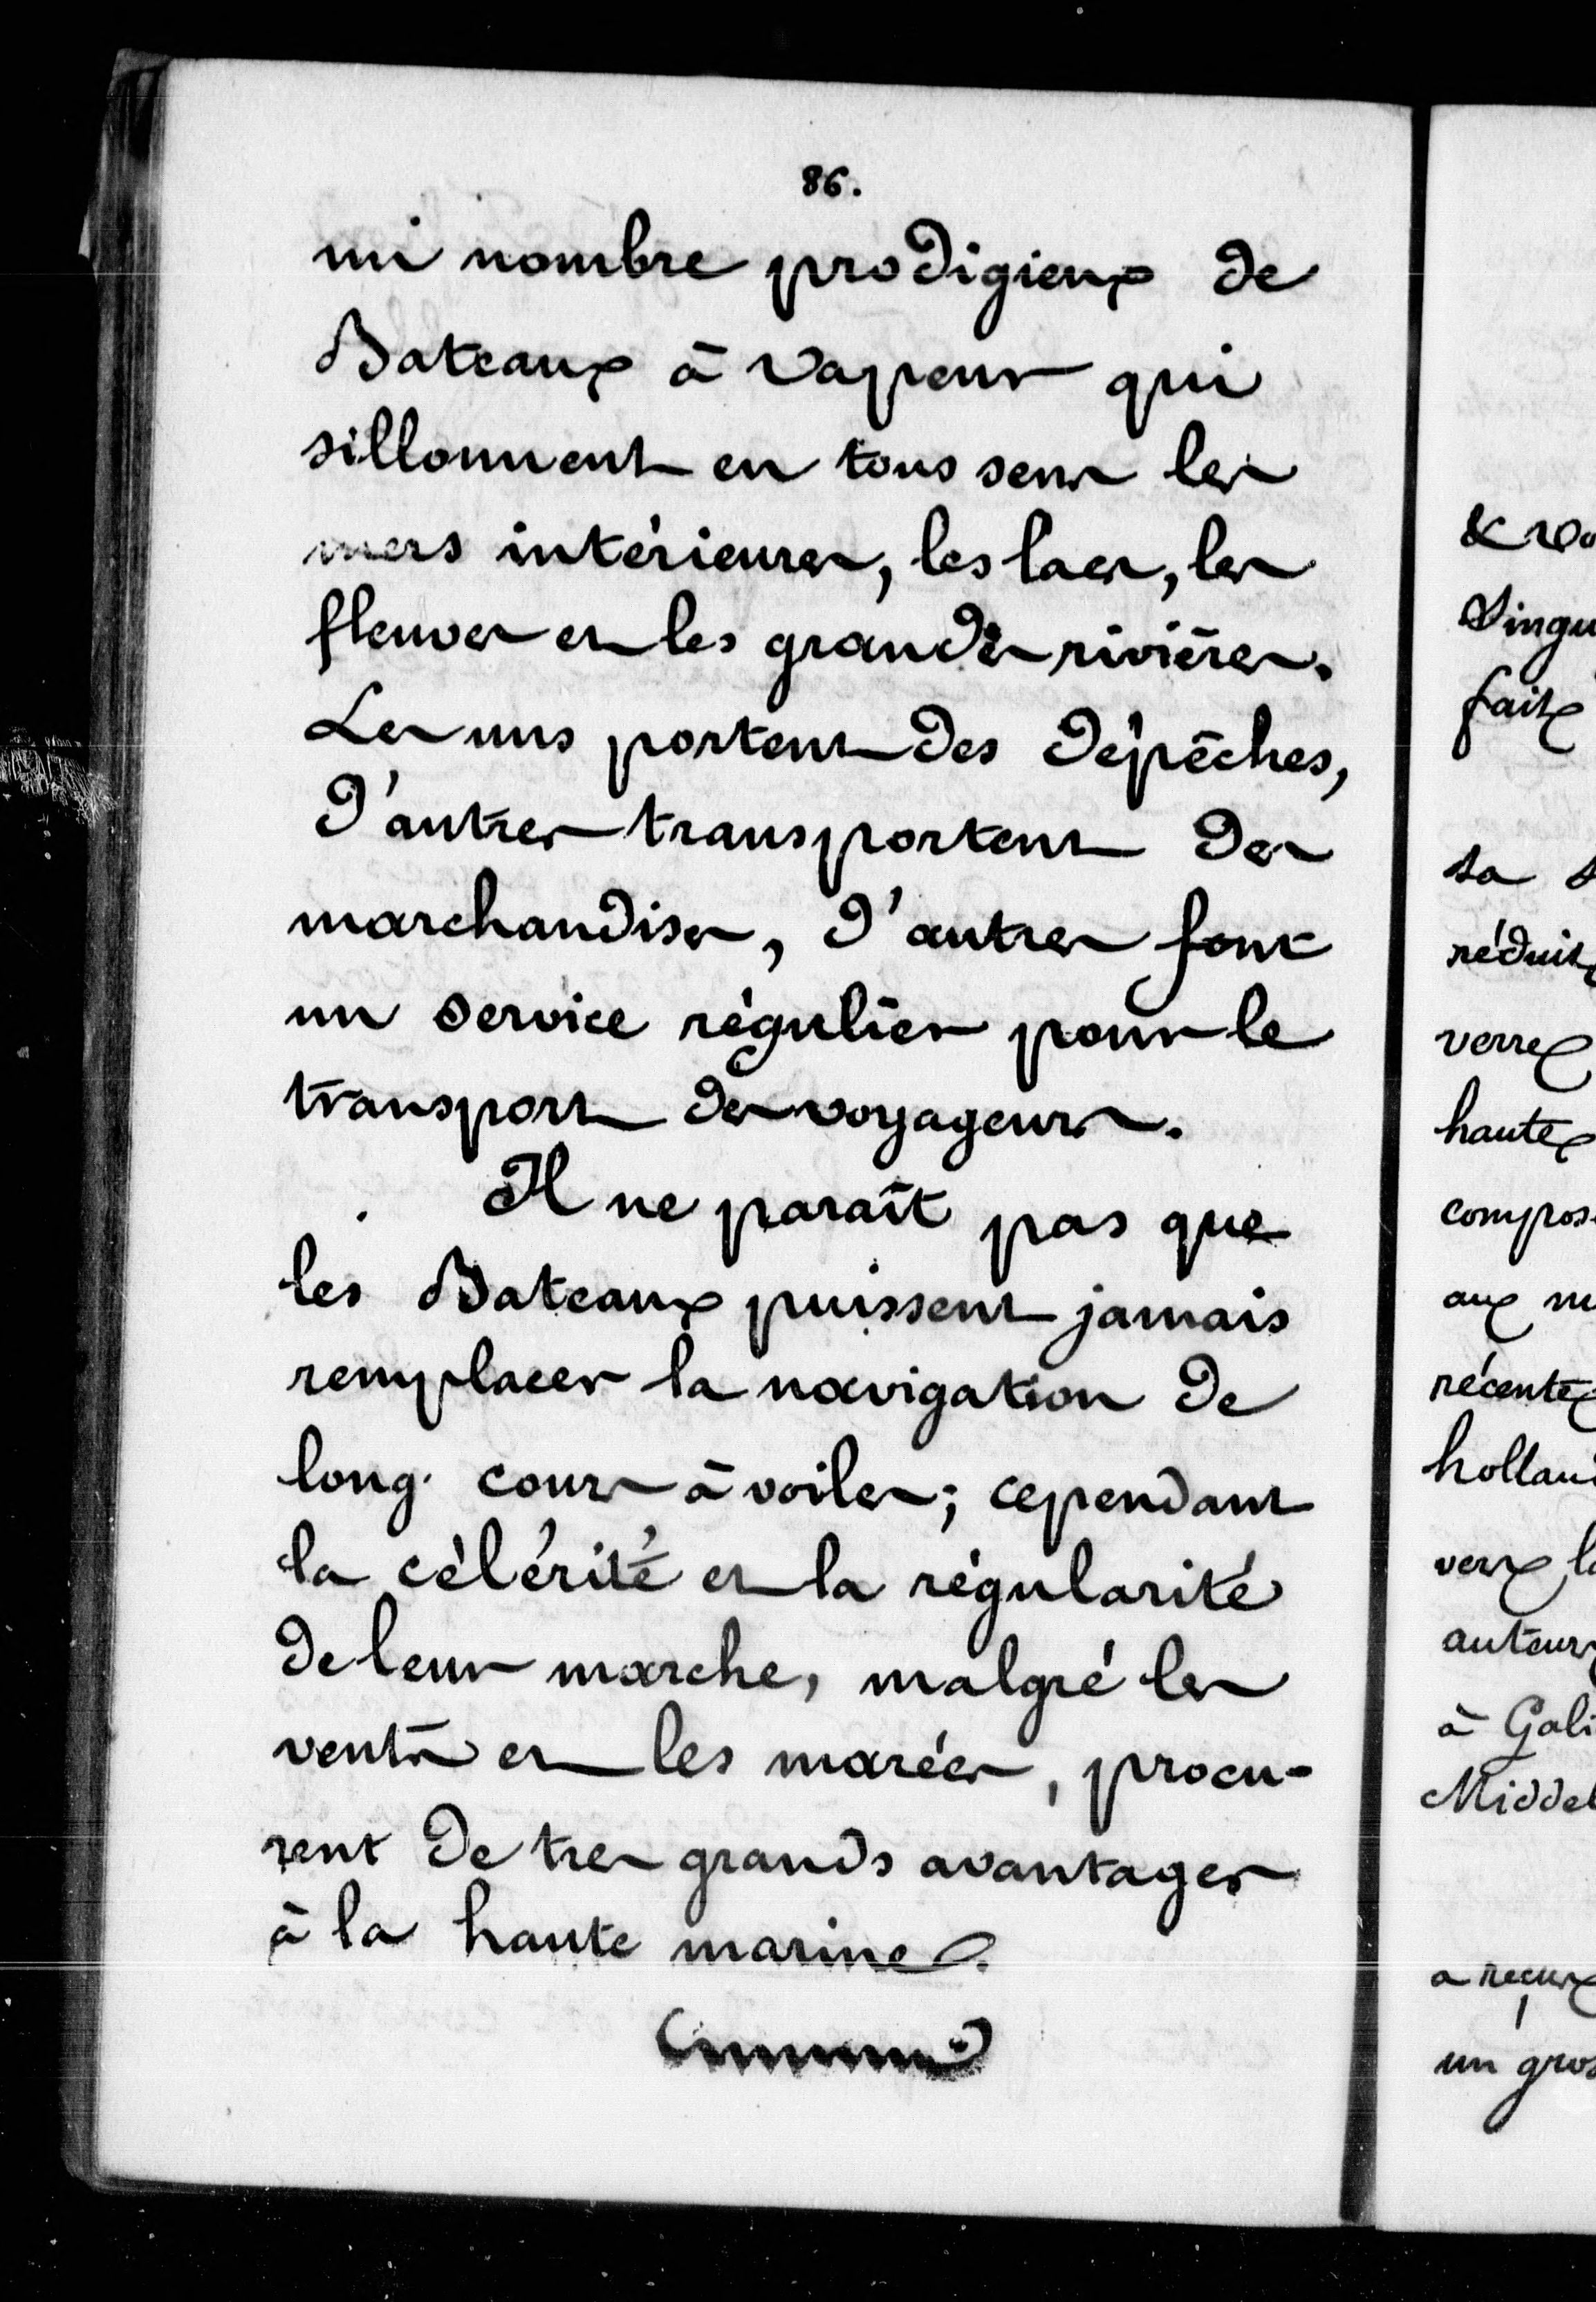 86.
un nombre prodigieux de
Bateaux à vapeur qui
sillonnent en tous sens les
mers intérieures, les lacs, les
fleuves et les grandes rivières.
Les uns portent des dépêches,
d'autres transportent des
marchandises, d'autres font
un service régulier pour le
transport des voyageurs.
Il ne paraît pas que
les Bateaux puissent jamais
remplacer la navigation de
long cours à voiles; cependant
la célérité et la régularité
de leur marche, malgré les
vents et les marées, procu-
rent de tres grands avantages
à la haute marine.
fait
sa
réduit
verre
haute
aux
récente
vers
auteur
à
a reçu
un